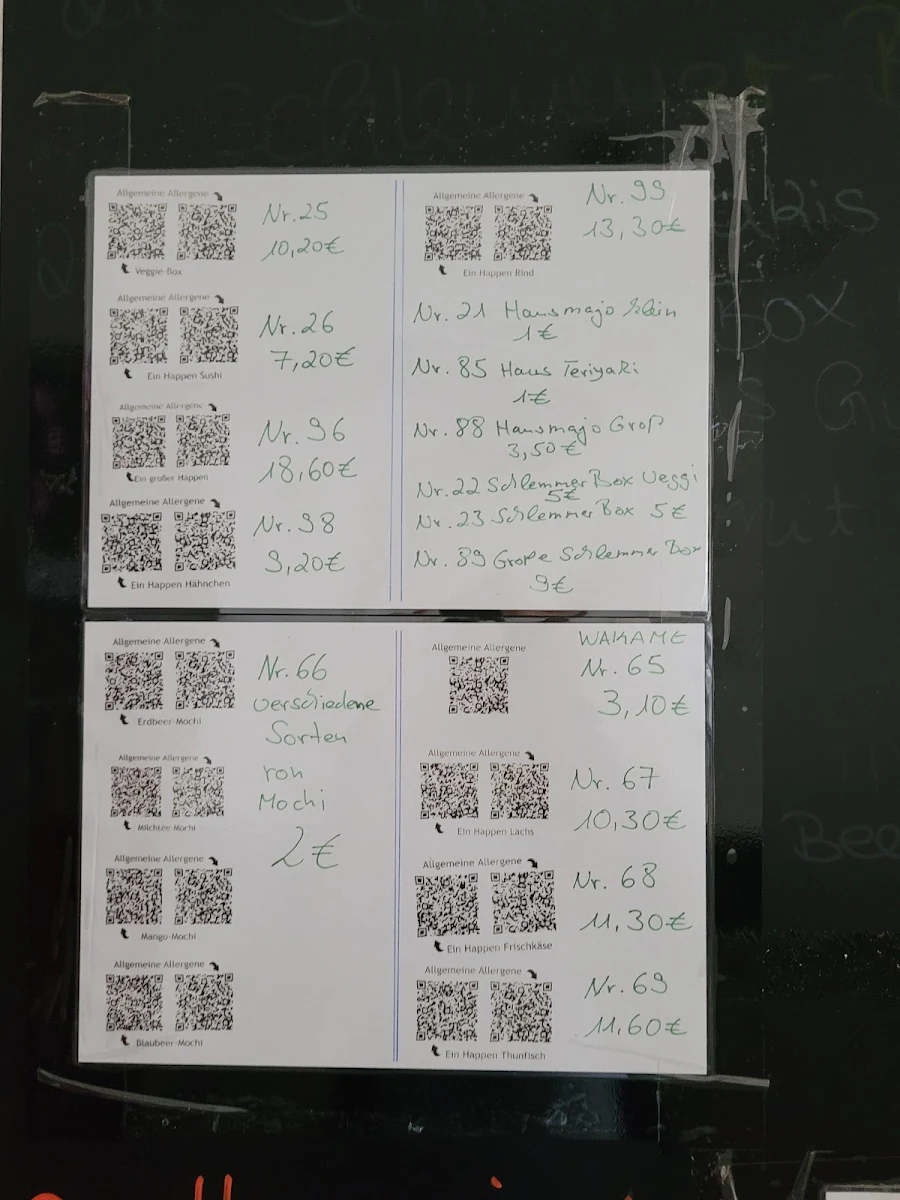 Allgemeine Allergene
Nr. 25
10,20€
Veggie-Box
Allgemeine Allergene
Nr. 26
7,20€
Ein Happen Sushi
Allgemeine Allergene
Nr. 96
18,60€
Ein großer Happen
Allgemeine Allergene
Nr. 98
9,20€
Ein Happen Hähnchen
Allgemeine Allergene
Nr. 99
13,30€
Ein Happen Rind
Nr. 21 Hausmajo klein
1€
Nr. 85 Haus Teriyaki
1€
Nr. 88 Hausmajo Groß
3,50€
Nr. 22 Schlemmer Box Veggi
5€
Nr. 23 Schlemmer Box 5€
Nr. 89 Große Schlemmer Box
9€
Allgemeine Allergene
Nr. 66
verschiedene
Sorten
von
Mochi
2€
Erdbeer-Mochi
Allgemeine Allergene
Milchtee-Mochi
Allgemeine Allergene
Mango-Mochi
Allgemeine Allergene
Blaubeer-Mochi
Allgemeine Allergene
WAKAME
Nr. 65
3,10€
Allgemeine Allergene
Nr. 67
10,30€
Ein Happen Lachs
Allgemeine Allergene
Nr. 68
11,30€
Ein Happen Frischkäse
Allgemeine Allergene
Nr. 69
11,60€
Ein Happen Thunfisch
Box